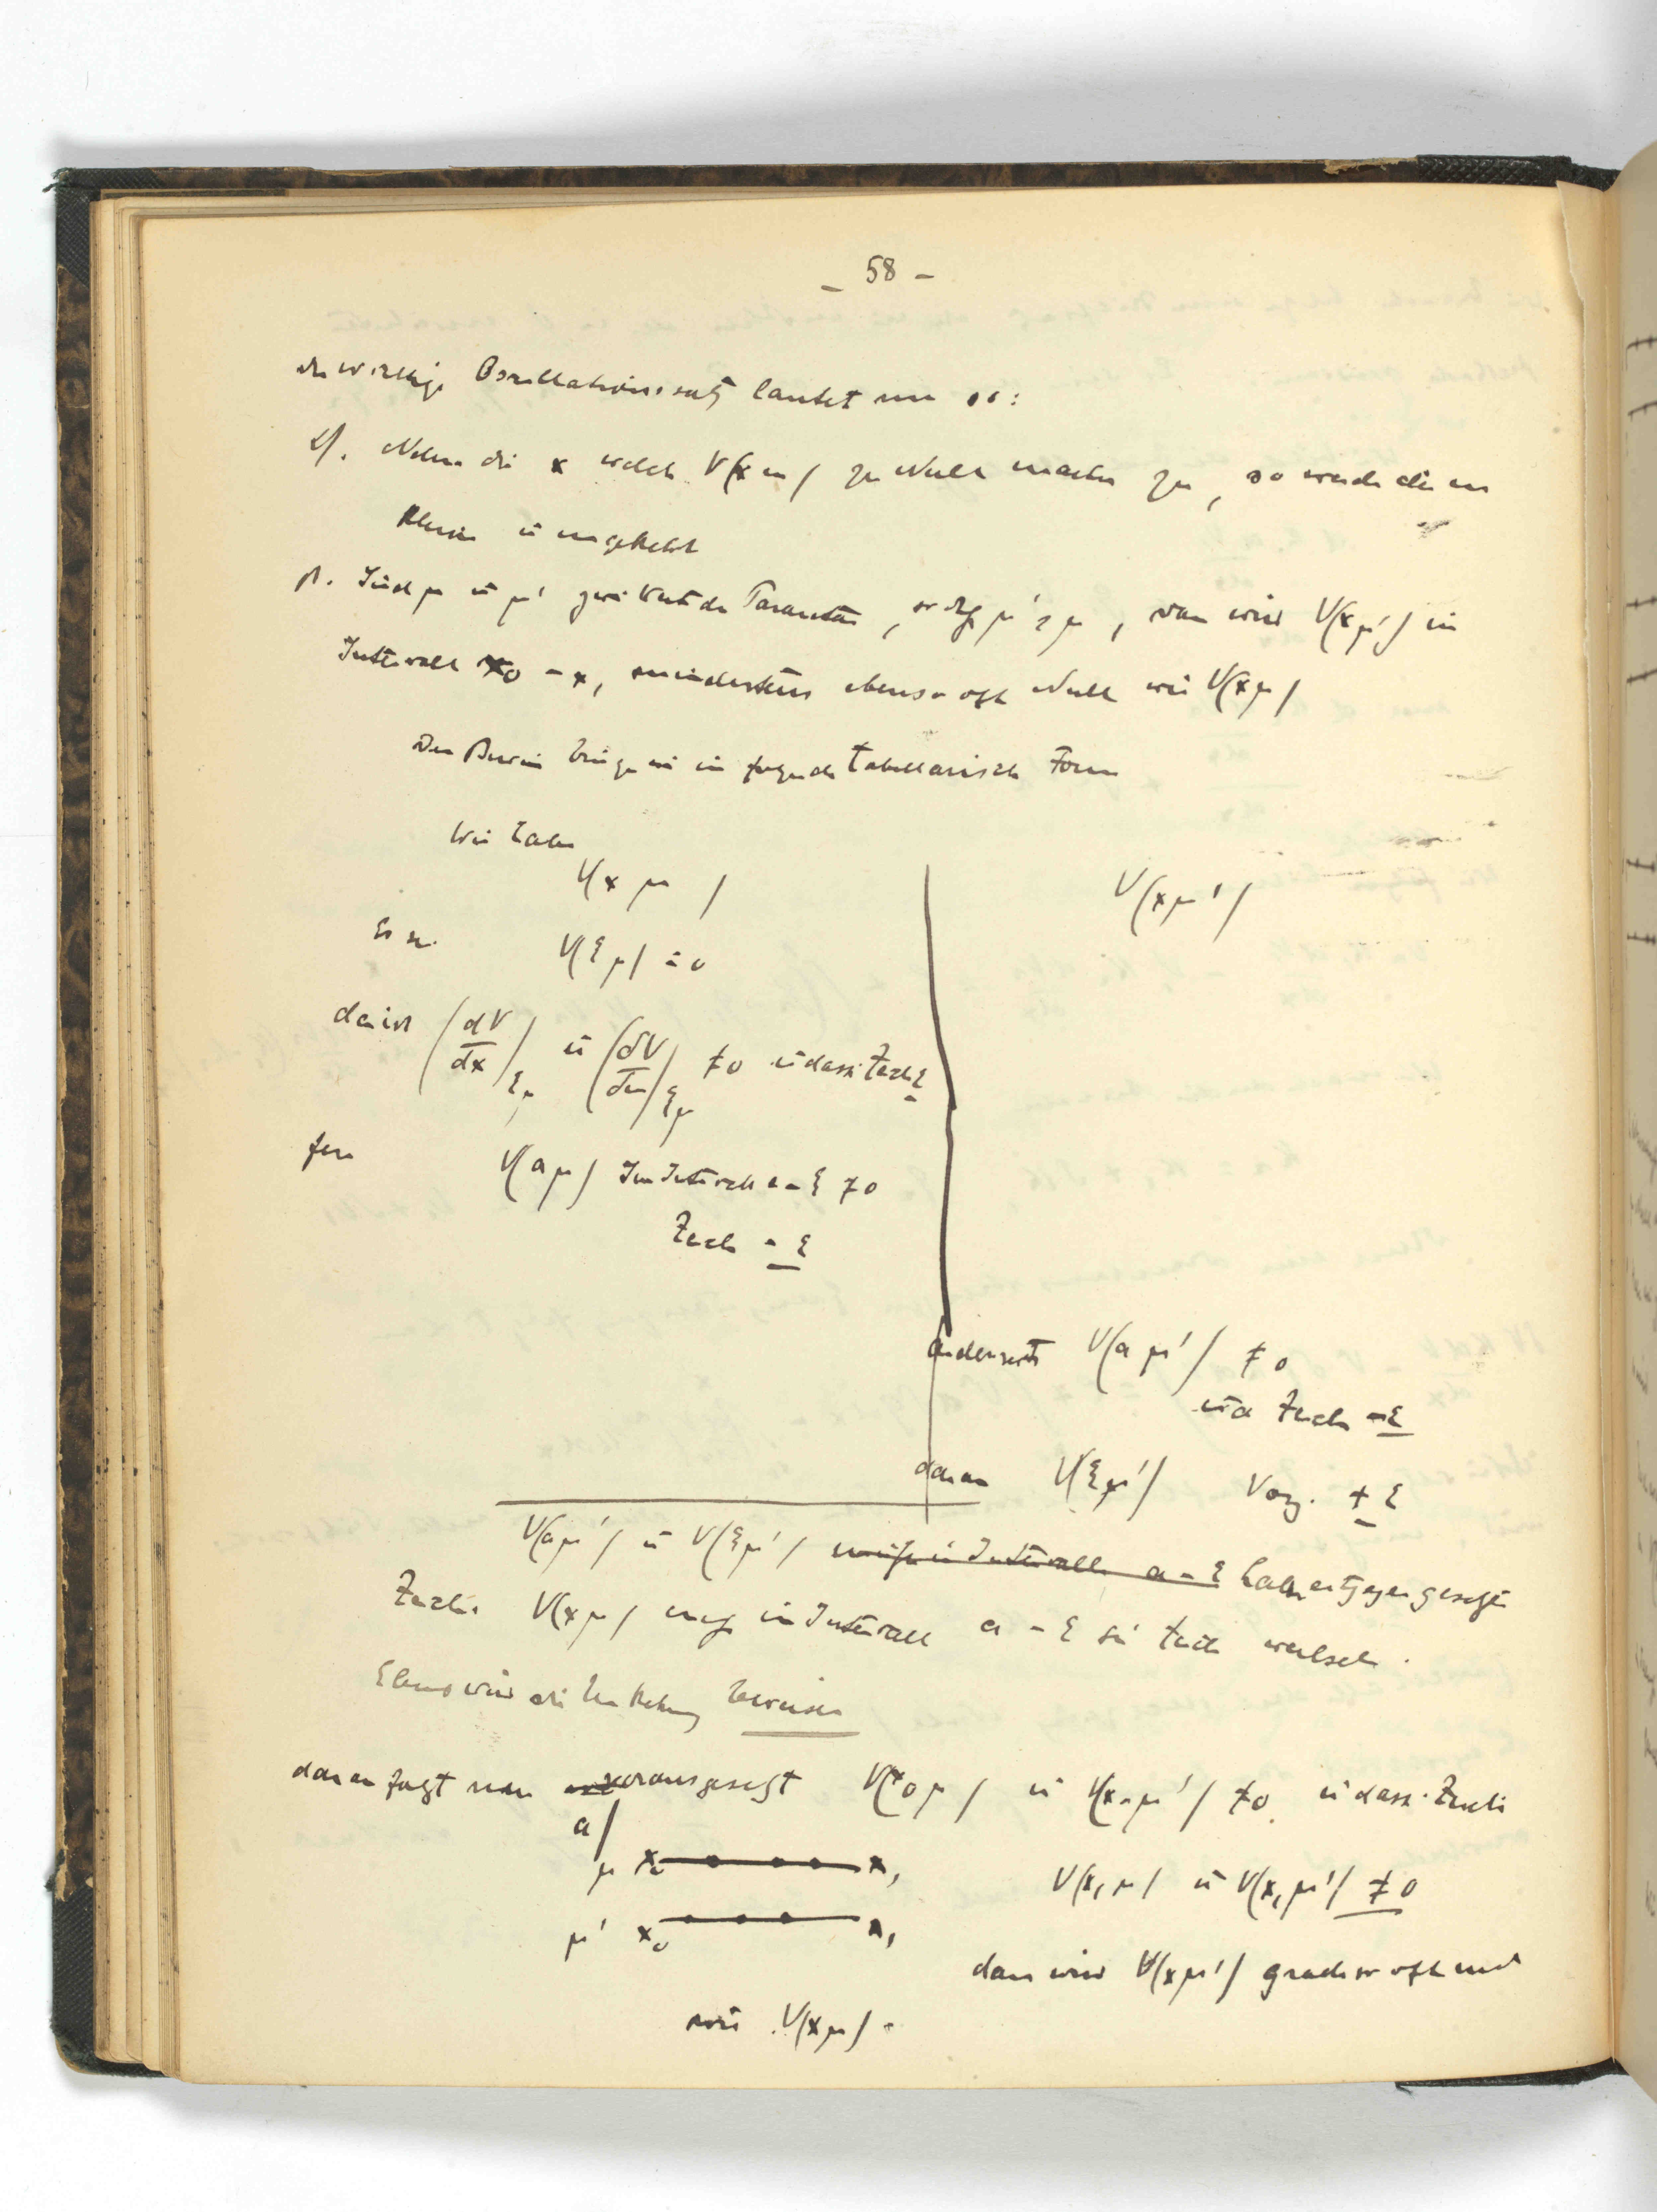 - 58 -
der wichtige Oscillationssatz lautet nun so:
α). Nehmen die x welche V(x m) zu Null machen zu, so werden die m
kleiner u umgekehrt
β. Sind μ u μ' zwei Werte des Parameters, μ' > μ, dann wird V(x μ') im
Intervall x0 - x1 mindestens ebenso oft Null wie V(x μ)
Den Beweis bringen wir in folgende tabellarische Form
Wir haben
V(x μ)
V(x μ')
Es sei
V(ξ μ) = 0
dann ist (dV/dx)ξμ u (dV/dμ)ξμ ≠ 0 u dass. Zeich. ε
ferner V(a μ) Im Intervall a - ξ ≠ 0
Zeich - ε
anderseits V(a μ') ≠ 0
u d Zeich - ε
daraus V(ξ μ') Vorz. + ε
V(a μ') u V(ξ μ') Intervall a - ξ haben entgegengesetzte
Zeichen V(x μ) muss im Intervall a - ξ sein Zeichen wechseln.
Ebenso wird die Umkehrung bewiesen
daraus folgt nun vorausgesetzt V(x0 μ) u V(x0 μ') ≠ 0 u dass. Zeich
a)
μ x0 x1
V(x1 μ) u V(x1 μ') ≠ 0
μ' x0 x1
dann wird V(x μ') grade so oft null
wie V(x μ).